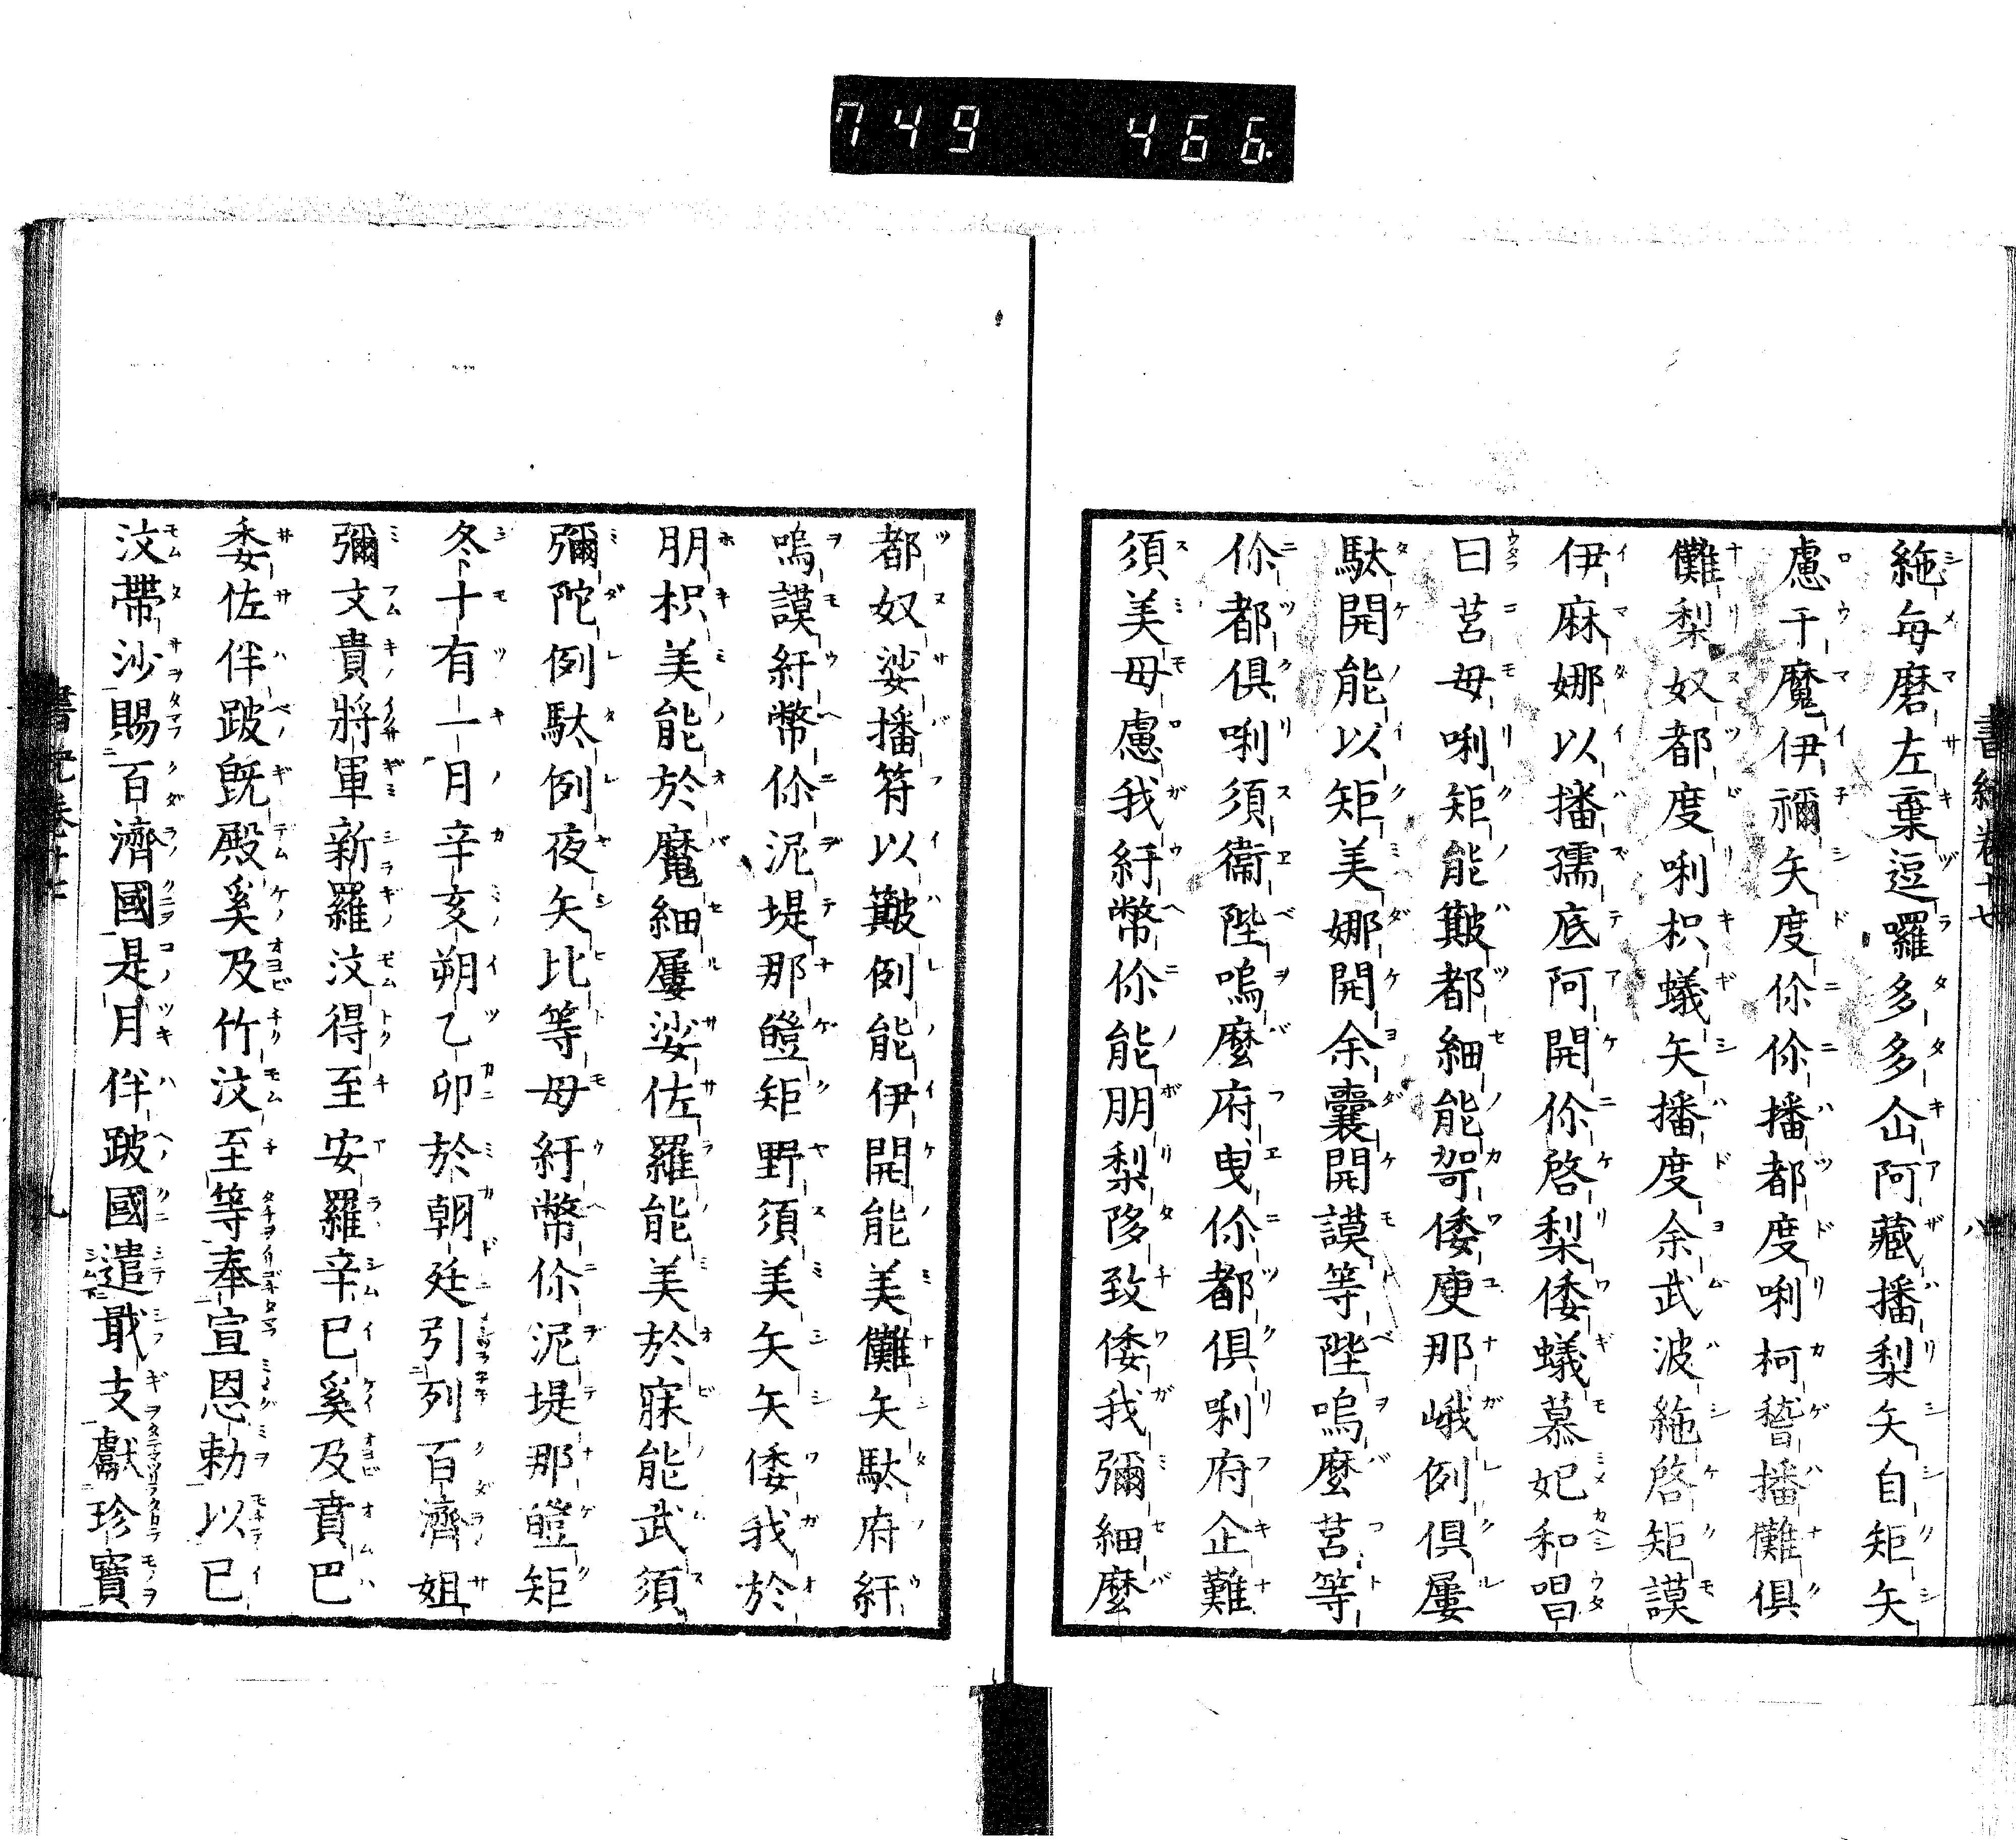 749 466
書紀卷十七 八
絁毎磨左棄逗囉多多企阿藏播梨矢自矩矢
慮于魔伊禰矢度伱伱播都度唎柯稽播儺俱
儺梨奴都度唎枳蟻矢播度余武波絁啓矩謨
伊麻娜以播孺底阿開伱啓梨倭蟻慕妃和唱
曰莒母唎矩能簸都細能哿倭庾那峨例俱屢
駄開能以矩美娜開余嚢開謨等陛嗚麼莒等
伱都俱唎須衞陛嗚麼府曳伱都俱唎府企難
須美母慮我紆幣伱能朋梨陊致倭我彌細麼
都奴娑播符以簸例能伊開能美儺矢駄府紆
嗚謨紆幣伱泥堤那皚矩野須美矢矢倭我於
朋枳美能於魔細屢娑佐羅能美於寐能武須
彌陀例駄例夜矢比等母紆幣伱泥堤那皚矩
冬十有一月辛亥朔乙卯於朝廷引列百濟姐
彌文貴將軍新羅汶得至安羅辛巳奚及賁巴
委佐伴跛旣殿奚及竹汶至等奉宣恩勅以已
汶帶沙賜百濟國是月伴跛國遣戢支獻珍寶
書紀卷十七 九